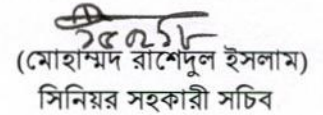 (মোহাম্মদ রাশেদুল ইসলাম)
সিনিয়র সহকারী সচিব